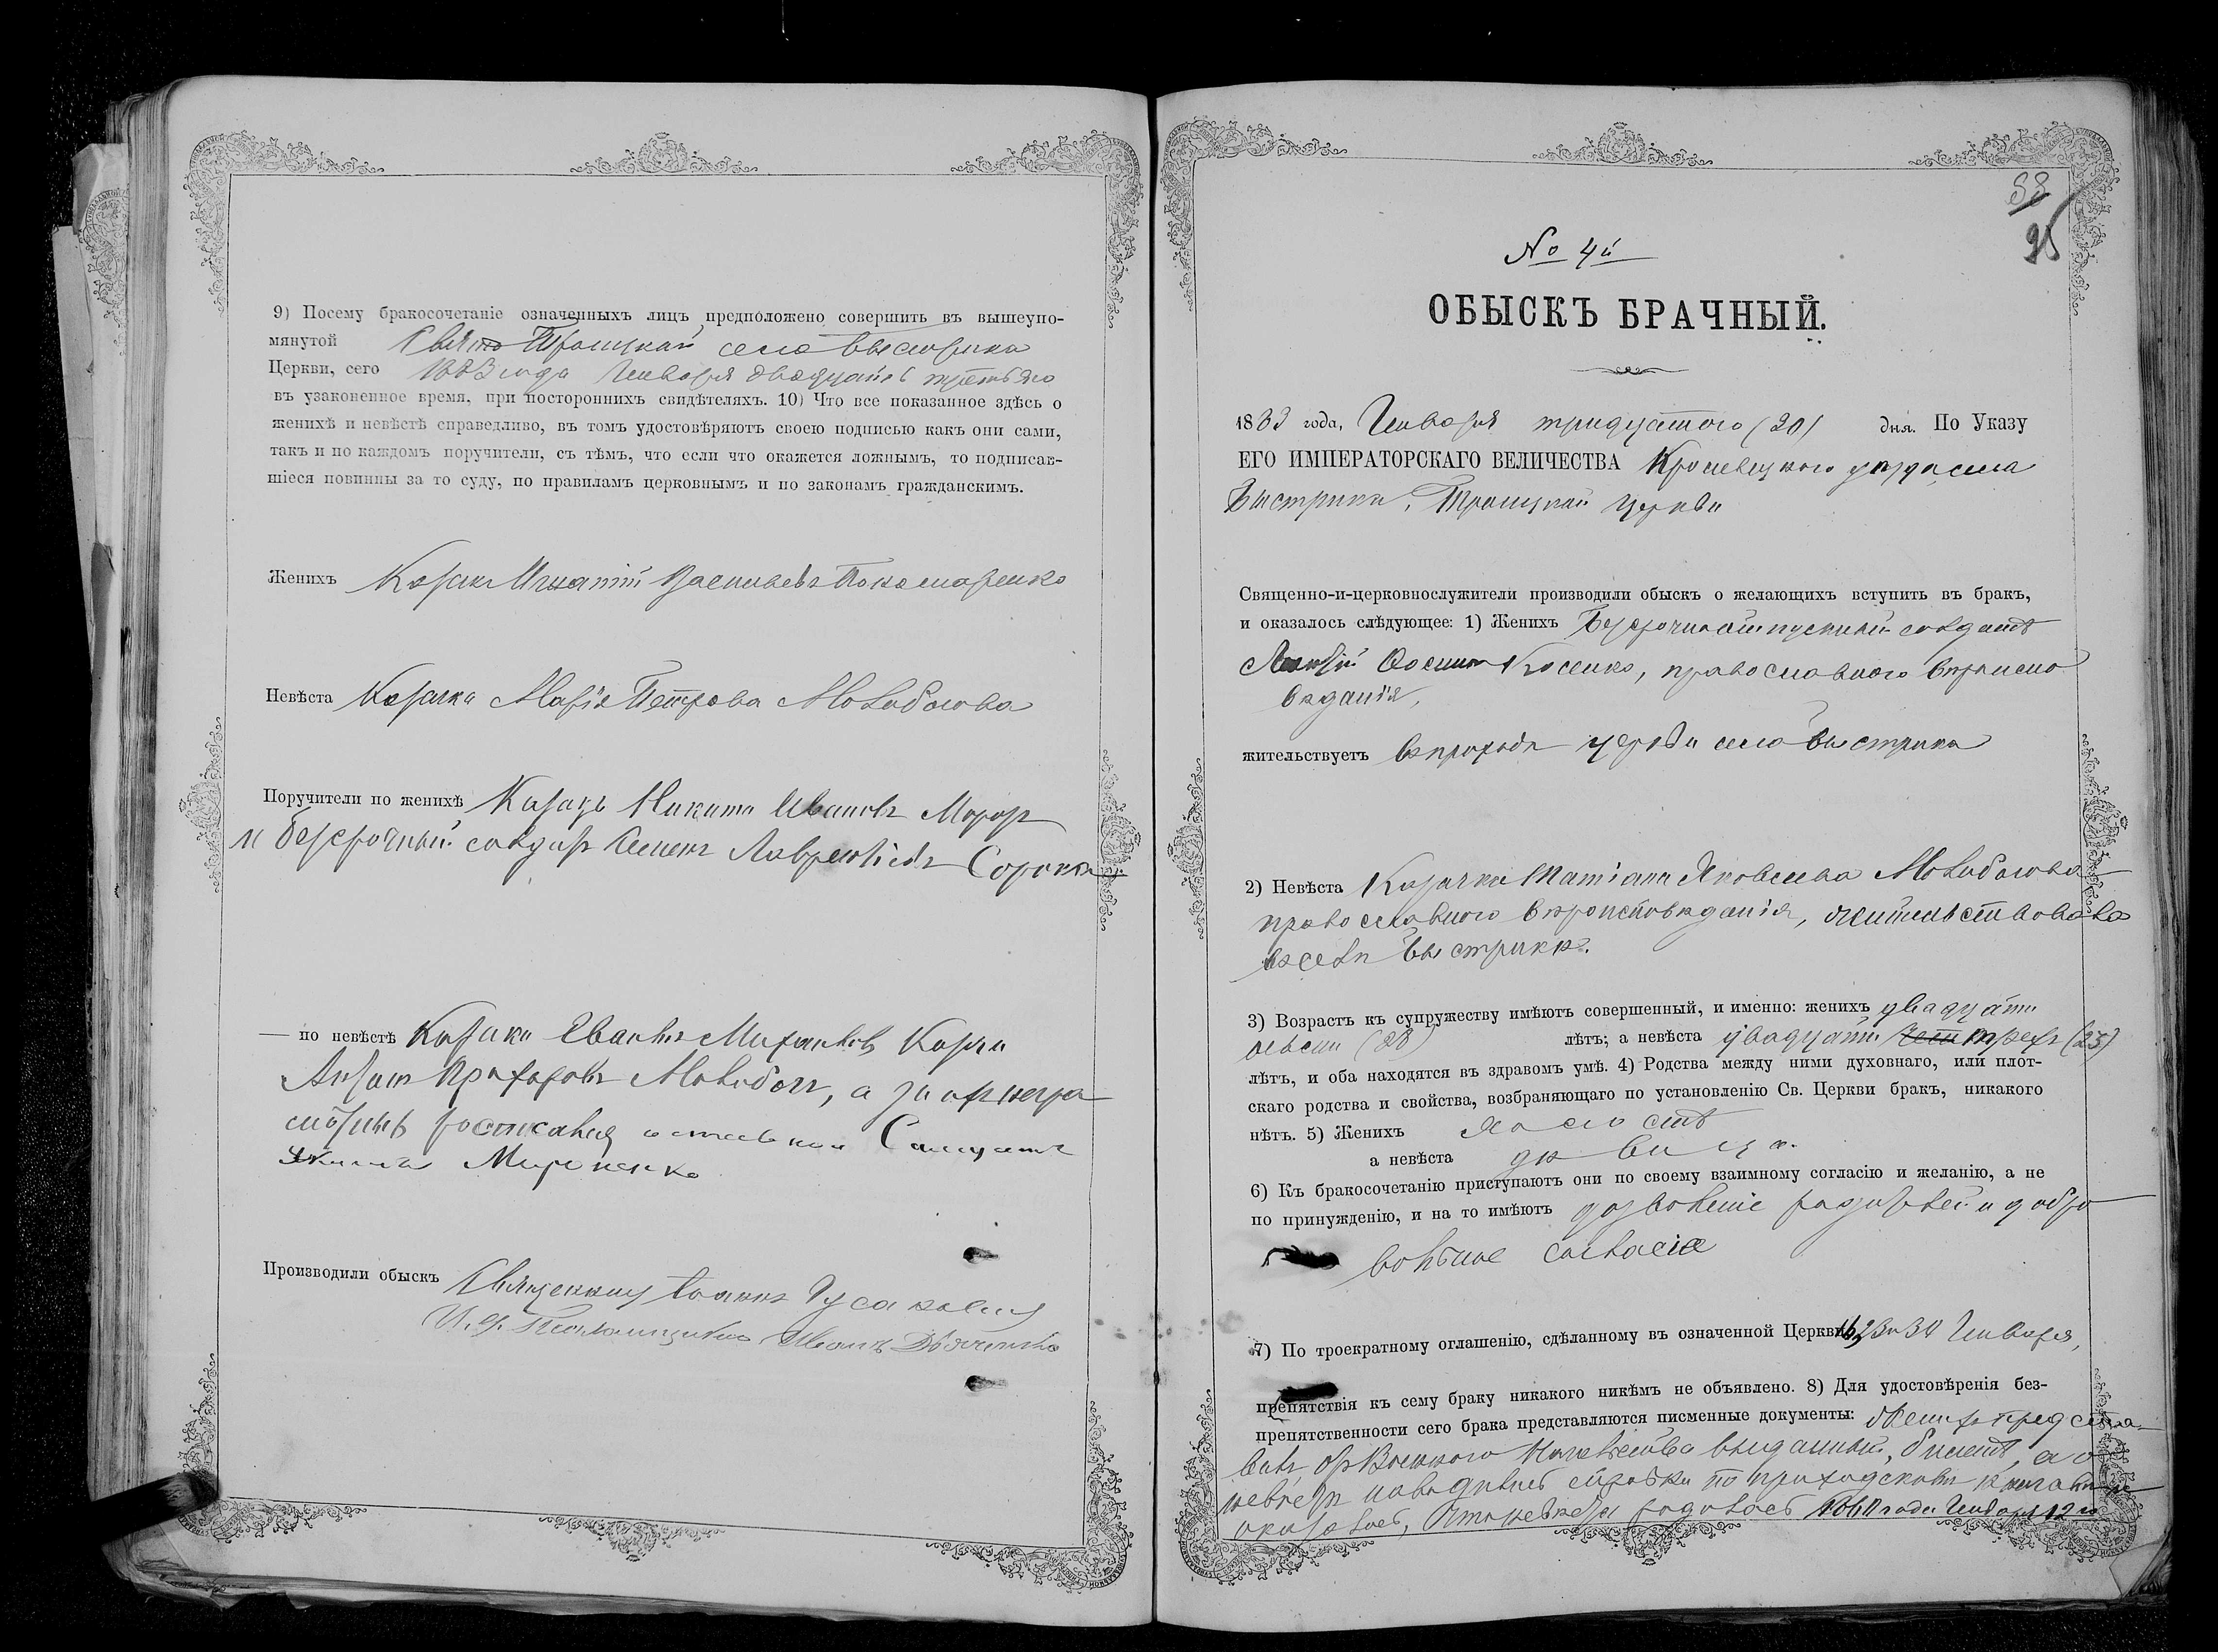 9) Посему бракосочетаніе означенныхъ лицъ предположено совершить въ вышеупо-
мянутой Свято Троицкой села Быстрика
Церкви, сего 1883 года Января двадцать третьяго
въ узаконенное время, при постороннихъ свидѣтеляхъ. 10) Что все показанное здѣсь о
женихѣ и невѣстѣ справедливо, въ томъ удостовѣряютъ своею подписью какъ они сами,
такъ и по каждомъ поручители, съ тѣмъ, что если что окажется ложнымъ, то подписав-
шіеся повинны за то суду, по правиламъ церковнымъ и по законамъ гражданскимъ.
Женихъ Козакъ Игнатій Васильевъ Пономаренко
Невѣста Козачка Марія Петрова Молибогова
Поручители по женихѣ Казакъ Никита Ивановъ Мороз
и безсрочный солдатъ Семенъ Лаврентіевъ Сорока
— по невѣстѣ Козаки Михайловъ
Прохоровъ Молибога, а за негра
мотныхъ росписался
Мироненко
Производили обыскъ Священникъ Іоаннъ Гусаковскій
И. д. Псаломщика Иванъ
88
95
№ 4й
ОБЫСКЪ БРАЧНЫЙ.
1883 года, Января тридцатого (30) дня. По Указу
ЕГО ИМПЕРАТОРСКАГО ВЕЛИЧЕСТВА Кролевецкого уѣзда села
Быстрика, Троицкой церкви
Священно-и-церковнослужители производили обыскъ о желающихъ вступить въ бракъ,
и оказалось слѣдующее: 1) Женихъ Безсрочноотпускной солдатъ
Косенко, православного вѣроиспо
вѣданія,
жительствуетъ въ приходѣ церкви села Быстрика
2) Невѣста Козачка Татіана Яковлева Молибогова
православного вѣроисповѣданія, жительствовала
въ селѣ Быстрикѣ.
3) Возрастъ къ супружеству имѣютъ совершенный, и именно: женихъ двадцати
восьми (28) лѣтъ; а невѣста двадцати трехъ (23)
лѣтъ, и оба находятся въ здравомъ умѣ. 4) Родства между ними духовнаго, или плот-
скаго родства и свойства, возбраняющаго по установленію Св. Церкви бракъ, никакого
нѣтъ. 5) Женихъ холостъ
а невѣста дѣвица.
6) Къ бракосочетанію приступаютъ они по своему взаимному согласію и желанію, а не
по принужденію, и на то имѣютъ дозволеніе родителей и добро
вольное согласіе
7) По троекратному оглашенію, сдѣланному въ означенной Церкви 23 и 30 Января,
препятствія къ сему браку никакого никѣмъ не объявлено. 8) Для удостовѣренія без-
препятственности сего брака представляются писменные документы: женихъ предста-
вилъ отъ Военного Начальства выданный билетъ, а о
невѣстѣ наводились справки по приходскимъ книгамъ
оказалось, что невѣста родилась 1860 года Января 12го